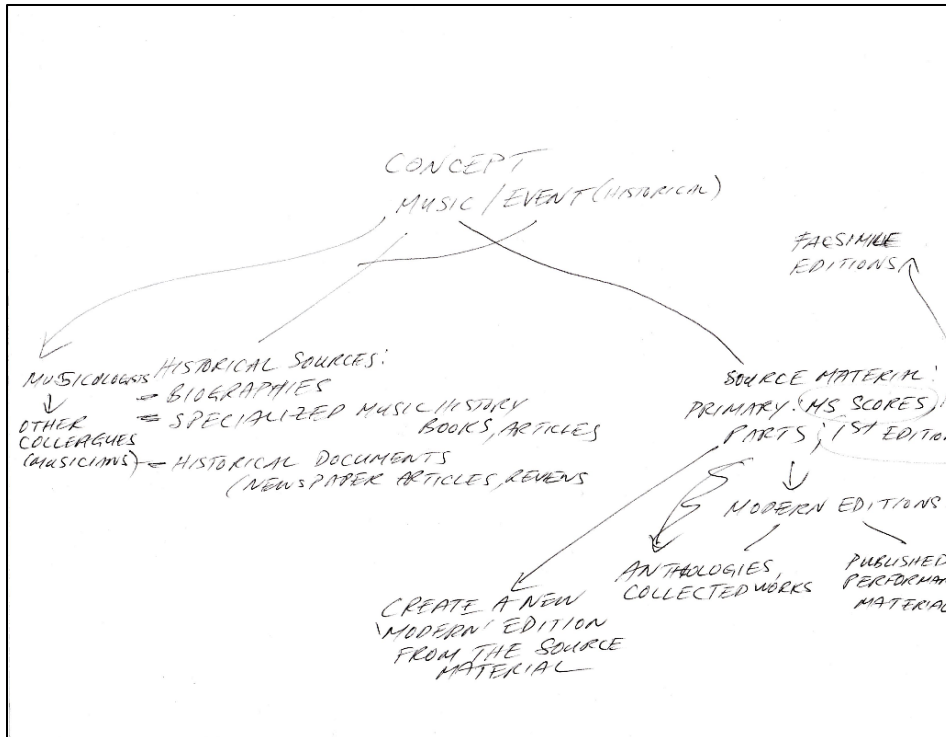 CONCEPT
MUSIC / EVENT (HISTORICAL)
FACSIMILE
EDITIONS
MUSICOLOGISTS
OTHER
COLLEAGUES
(MUSICIANS)
HISTORICAL SOURCES:
= BIOGRAPHIES
= SPECIALIZED MUSIC HISTORY
BOOKS, ARTICLES
= HISTORICAL DOCUMENTS
(NEWSPAPER ARTICLES, REVIEWS
SOURCE MATERIAL:
PRIMARY: (MS SCORES),
PARTS; 1ST EDITION
MODERN EDITIONS
ANTHOLOGIES,
COLLECTED WORKS
PUBLISHED
PERFORMAN
MATERIAL
CREATE A NEW
'MODERN' EDITION
FROM THE SOURCE
MATERIAL